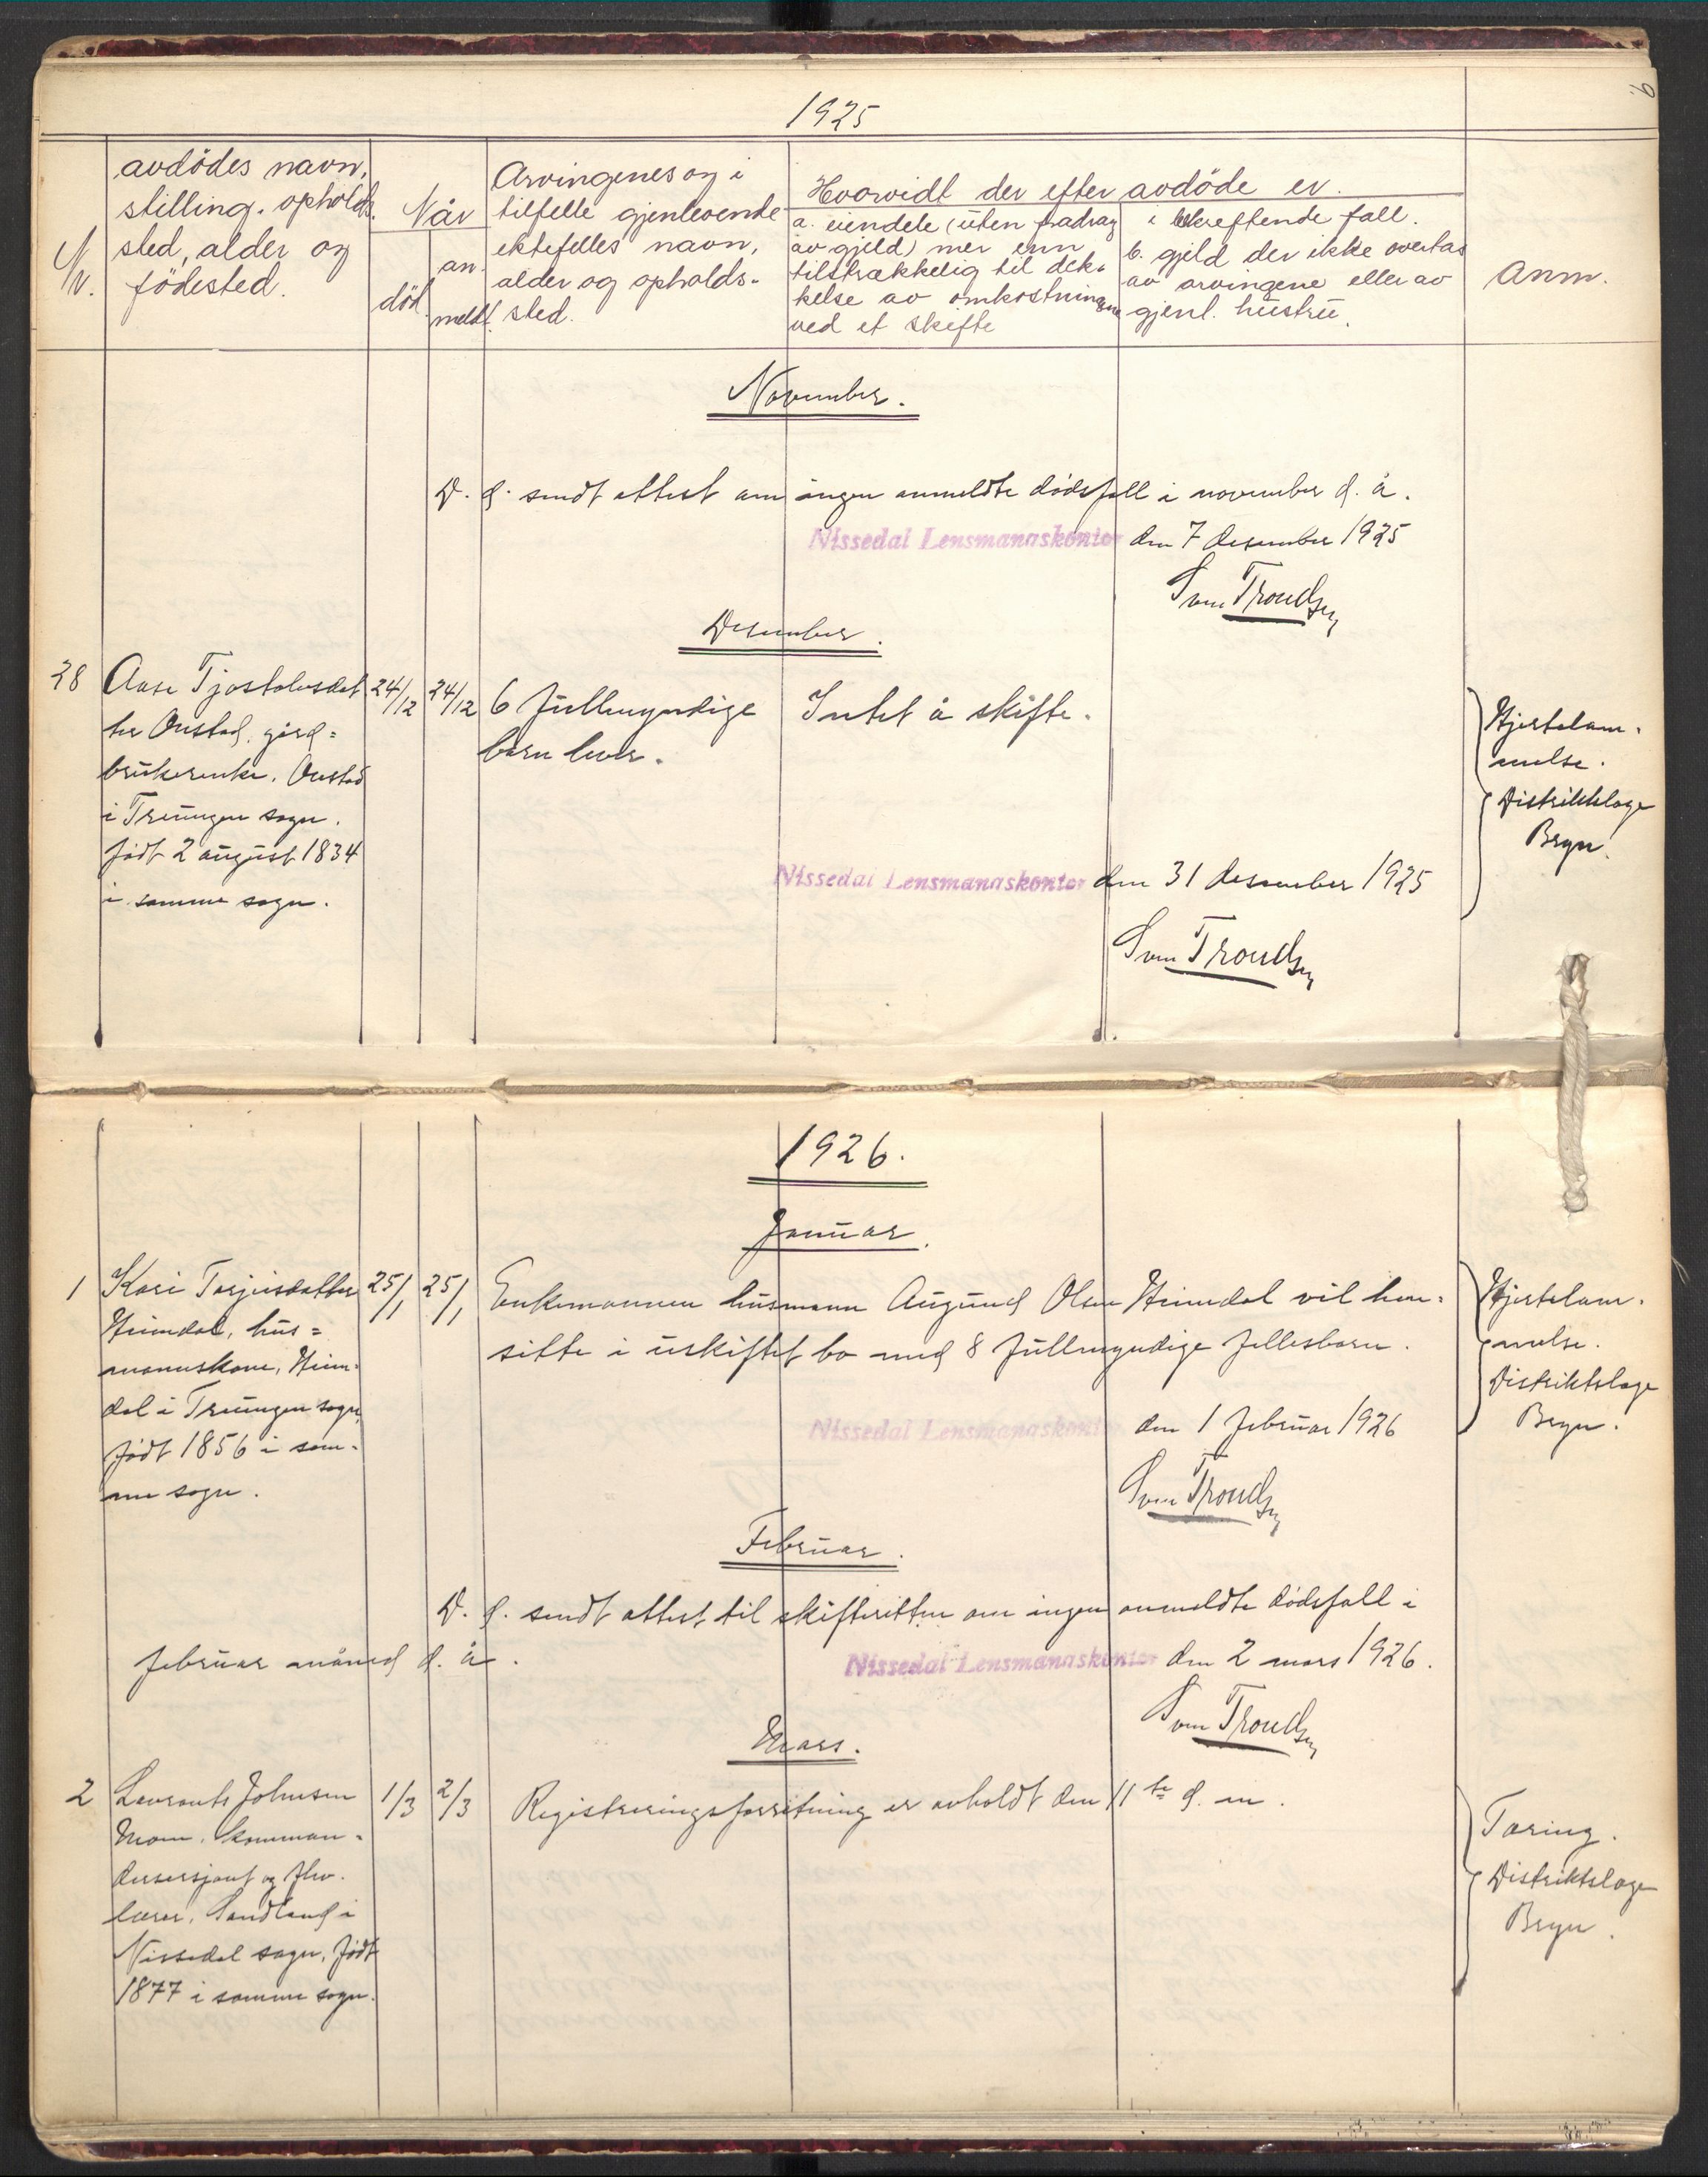 6
1925
Nr.
avdödes navn,
stilling, opholds-
sted, alder og
födested.
Når
död
an-
meldt
Arvingenes og i
tilfelle gjenlevende
ektefelles navn,
alder og opholds-
sted.
Hvorvidt der efter avdöde er
a. eiendele (uten fradrag
av gjeld) mer enn
tilstrækkelig til dek-
kelse av omkostningene
ved et skifte
i bekreftende fall.
b. gjeld der ikke overtas
av arvingene eller av
gjenl. hustru.
Anm.
November.
D. d. sendt attest om ingen anmeldte dödsfall i november d. å.
Nissedal Lensmannskontor den 7 desember 1925
Sven Trondsen
Desember.
28 Aase Tjostolvsdat
ter Onstad, gård=
brukerenke, Onstad
i Treungen sogn.
födt 2 august 1834
i samme sogn.
24/12 24/12
6 fullmyndige
barn lever.
Intet å skifte.
Hjertelam-
melse.
Distriktslæge
Bryn.
Nissedal Lensmannskontor den 31 desember 1925
Sven Trondsen
1926.
Januar.
1 Kari Tarjeisdatter
Heimdal, hus=
mannskone, Heim-
dal i Treungen sogn,
födt 1856 i sam-
me sogn.
25/1 25/1
Enkemannen husmann Augund Olsen Heimdal vil hen-
sitte i uskiftet bo med 8 fullmyndige fellesbarn.
Hjertelam-
melse.
Distriktslæge
Bryn.
Nissedal Lensmannskontor den 1 februar 1926
Sven Trondsen
Februar.
D. d. sendt attest til skifteretten om ingen anmeldte dödsfall i
februar måned d. å.
Nissedal Lensmannskontor den 2 mars 1926.
Sven Trondsen
Mars.
2 Lavrants Johnsen
Moen, komman-
dersersjant og
lærer, Sandland i
Nissedal sogn, födt
1877 i samme sogn.
1/3 2/3
Registreringsforretning er avholdt den 11te d. m.
Tæring.
Distriktslæge
Bryn.